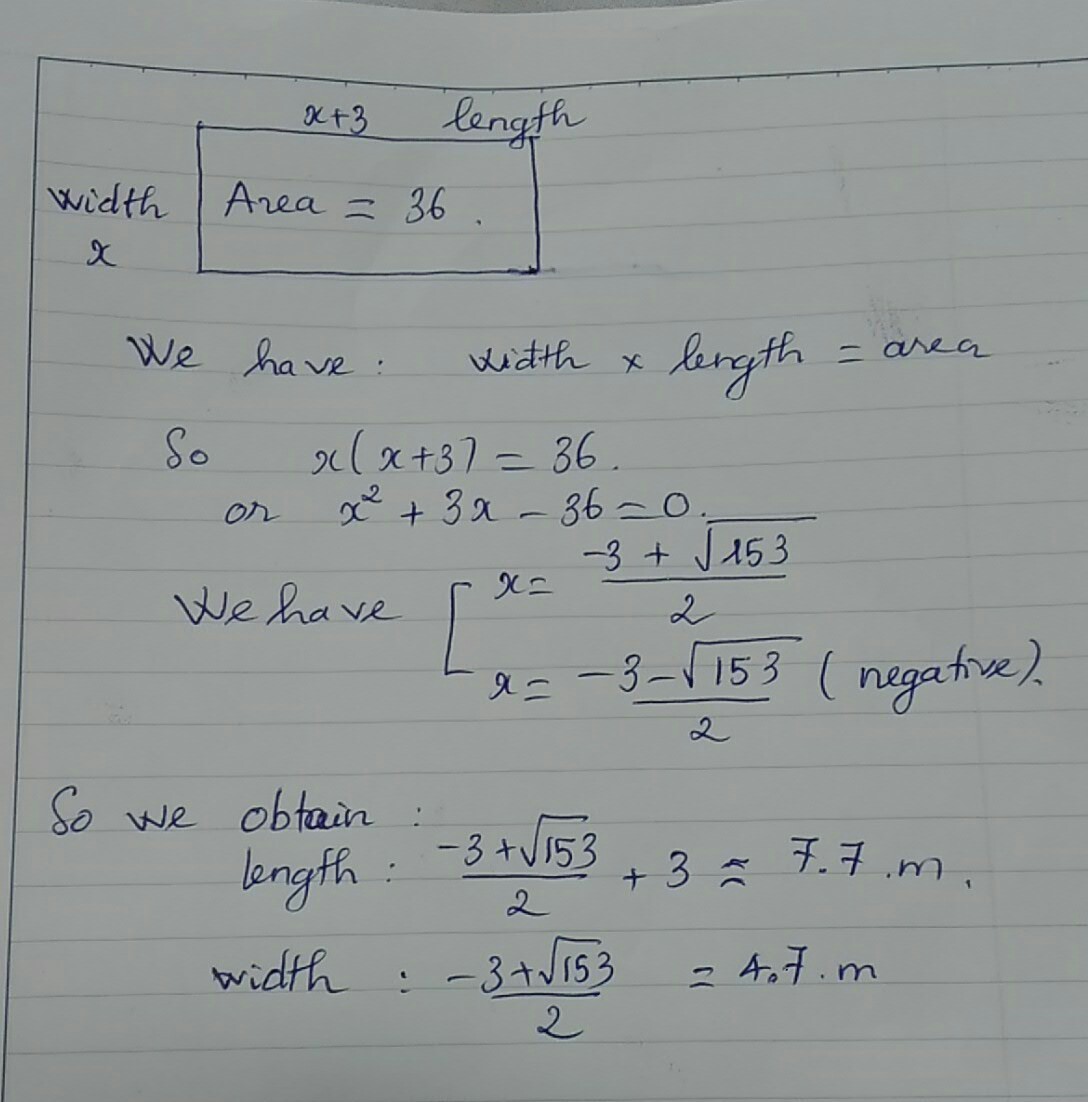 x+3 length
width Area = 36.
x
We have: width x length = area
So x(x+3) = 36.
or x² + 3x - 36 = 0.
We have [ x = (-3 + √153)/2
x = (-3 - √153)/2 (negative).
So we obtain :
length : (-3+√153)/2 + 3 ≈ 7.7.m.
width : (-3+√153)/2 = 4.7.m